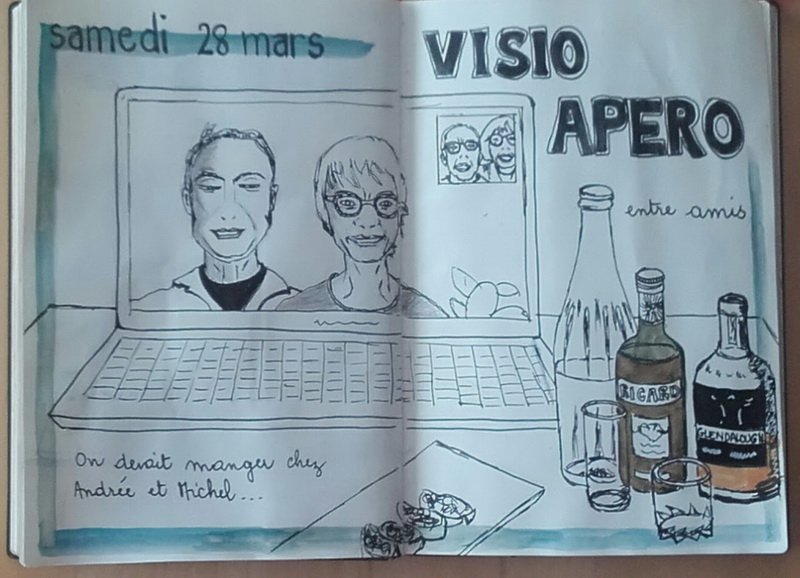 samedi 28 mars
VISIO
APERO
entre amis
RICARD
GLENDALOUGH
On devait manger chez
Andrée et Michel...